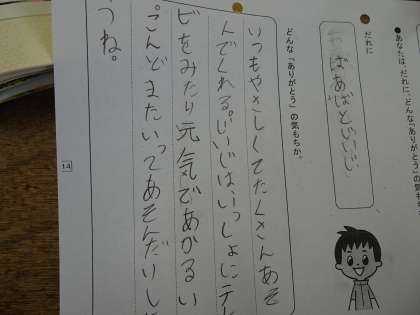 ●あなたは、だれに、どんな「ありがとう」の気もち
だれに
ばあばとじいじ
どんな「ありがとう」の気もちか。
いつもやさしくてたくさんあそ
んでくれる。じいじは、いっしょにテレ
ビをみたり元気であかるい
。こんどまたいってあそんだりし
うね。
14